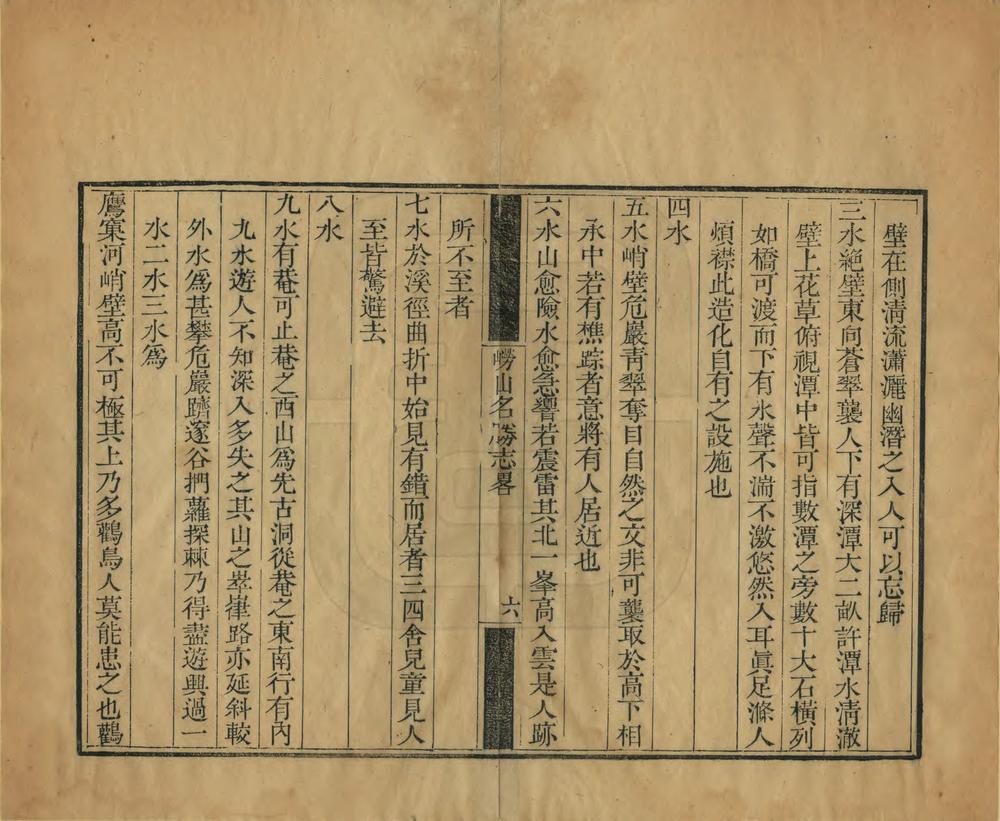 壁在側清流瀟灑幽潛之入人可以忘歸
三水絶壁東向蒼翠襲人下有深潭大二畝許潭水清澈
壁上花草俯視潭中皆可指數潭之旁數十大石橫列
如橋可渡而下有水聲不湍不激悠然入耳眞足滌人
煩襟此造化自有之設施也
四水
五水峭壁危巖靑翠奪目自然之文非可襲取於高下相
承中若有樵踪者意將有人居近也
六水山愈險水愈急響若震雷其北一峯高入雲是人跡
嶗山名勝志畧
六
所不至者
七水於溪徑曲折中始見有錯而居者三四舍兒童見人
至皆驚避去
八水
九水有菴可止菴之西山爲先古洞從菴之東南行有內
九水遊人不知深入多失之其山之崒嵂路亦延斜較
外水爲甚攀危巖躋邃谷捫蘿探棘乃得盡遊興過一
水二水三水爲
鷹窠河峭壁高不可極其上乃多鸛鳥人莫能患之也鸛